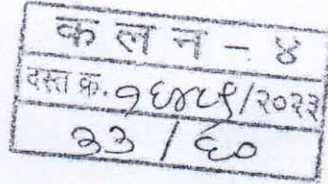 कलन - ४
दस्त क्र. १६४८९/२०२३
३३ / ६०